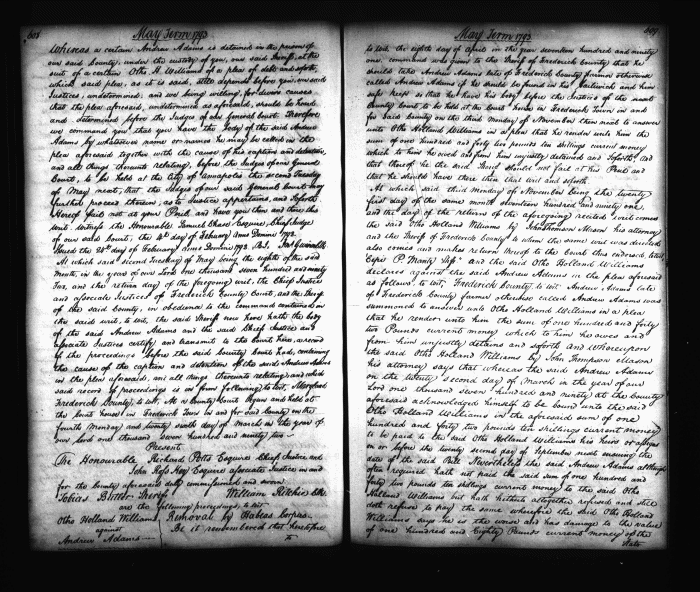 608
May Term 1793
Whereas a certain Andrew Adams is detained in the prison of
our said County, under the custody of you, our said Sheriff, at the
suit of a certain Otho H. Williams of a plea of debt and soforth
which said plea, as it is said, still depends before you, our said
Justices, undetermined: and we being willing, for divers causes
that the plea aforesaid, undetermined as aforesaid, should be heard
and determined before the Judges of our General Court. Therefore
we command you that you have the body of the said Andrew
Adams by whatsoever name or names he may be called in the
plea aforesaid together with the cause of his caption and detention,
and all things thereunto relating, before the Judges of our General
Court, to be held at the city of Annapolis the second Tuesday
of May next, that the Judges of our said General Court may
further proceed therein, as to Justice appertains, and soforth
Hereof fail not at your Peril and have you then and there this
writ. Witness the Honorable Samuel Chase Esquire, Chief Judge
of our said Court, the
Issued the February anno Domini 1793
At which said second Tuesday of May being the eighth of the said
Month, in the year of our Lord one thousand seven hundred and ninety
and the return day of the foregoing writ, the Chief Justice
and associate Justices of Frederick County Court, and the Sheriff
of the said County, in obedience to the command contained in
the said writ, to wit, the said Sheriff now here hath the body
of the said Andrew Adams and the said Chief Justice and
associate Justices certify and transmit to the Court here, a record
of the proceedings before the said County Court had, containing
the cause of the caption and detention of the said Andrew Adams
in the plea aforesaid, and all things thereunto relating; and which
said record of proceedings is in form following, to wit, Maryland
Frederick County, to wit, At a County Court begun and held at
the Court house in Frederick Town in and for said County on the
fourth Monday and twenty sixth day of March in the year of
our Lord one thousand seven hundred and ninety two
Present
The Honourable Richard Potts Esquire Chief Justice and
John Ross Key Esquire associate Justices in and
for the County aforesaid duly commissioned and sworn
Tobias Butler Sheriff William Ritchie Clk
are the following proceedings, to wit
Otho Holland Williams Removal by Habeas Corpus
against Be it remembered that heretofore
Andrew Adams to
609
May Term 1793
to wit, the eighth day of April in the year seventeen hundred and ninety
one, command was given to the Sheriff of Frederick County that he
should take Andrew Adams late of Frederick County farmer otherwise
called Andrew Adams if he should be found in his Bailiwick and him
safe keep so that he have his body before the Justices of the next
County Court to be held at the Court house in Frederick Town in and
for said County on the third Monday of November then next to answer
unto Otho Holland Williams in a plea that he render unto him the
sum of one hundred and forty two pounds ten shillings current money
which to him he owed and from him unjustly detained and soforth. And
that thereof he the said Sheriff should not fail at his Peril and
that he should have there then that writ and soforth
At which said third Monday of November being the twenty
first day of the same month seventeen hundred and ninety one,
and the day of the return of the aforegoing recited writ comes
the said Otho Holland Williams by John Thomson Mason his attorney
and the Sheriff of Frederick County to whom the same writ was directed
also comes and makes return thereof to the Court thus endorsed, to wit,
"Cepi P. Mantz Shff" And the said Otho Holland Williams
declares against the said Andrew Adams in the plea aforesaid
as follows, to wit, Frederick County to wit Andrew Adams late
of Frederick County farmer otherwise called Andrew Adams was
summoned to answer unto Otho Holland Williams in a plea
that he render unto him the sum of one hundred and forty
two Pounds current money which to him he owes and
from him unjustly detains and soforth And Whereupon
the said Otho Holland Williams by John Thompson Mason
his attorney says that whereas the said Andrew Adams
on the twenty second day of March in the year of our
Lord one thousand seven hundred and ninety at the County
aforesaid acknowledged himself to be bound unto the said
Otho Holland Williams in the aforesaid sum of one
hundred and forty two pounds ten shillings current money
to be paid to the said Otho Holland Williams his heirs or assigns
on or before the twenty second day of September next ensuing the
date of the said Bill Nevertheless the said Andrew Adams although
often required hath not paid the said sum of one hundred and
forty two pounds ten shillings current money to the said Otho
Holland Williams but hath hitherto altogether refused and still
doth refuse to pay the same wherefore the said Otho Holland
Williams says he is the worse and has damage to the value
of one hundred and Eighty Pounds current money of the
State